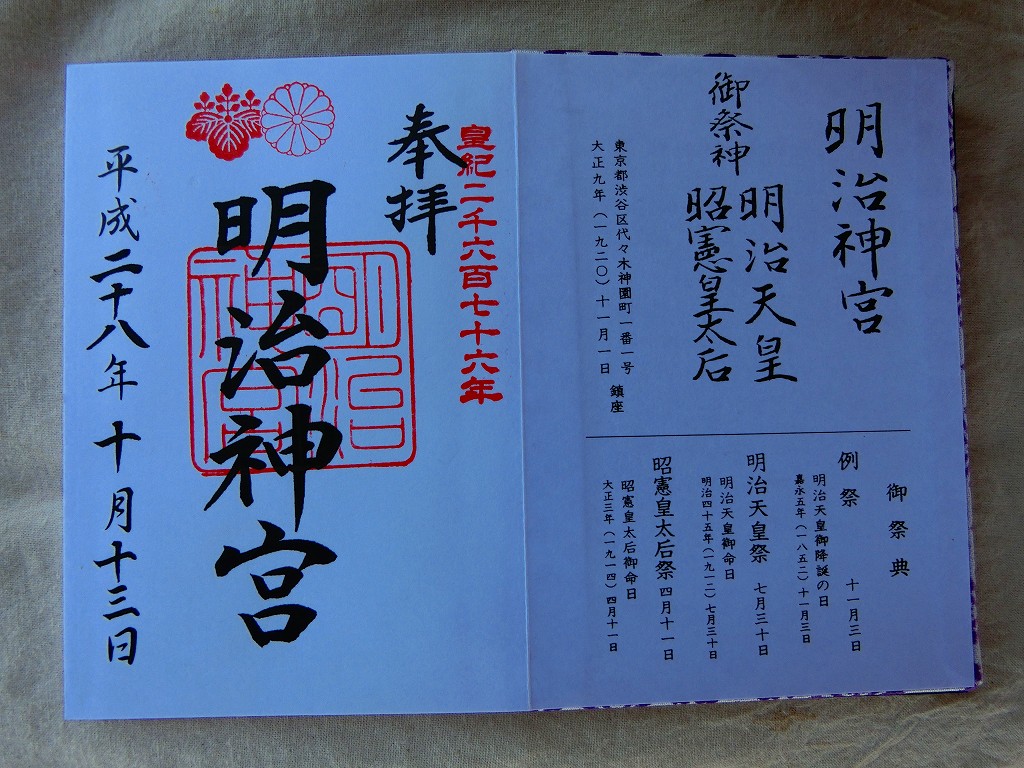 明治神宮
御祭神
明治天皇
昭憲皇太后
東京都渋谷区代々木神園町一番一号
大正九年(一九二〇)十一月一日 鎮座
御祭典
例祭 十一月三日
明治天皇御降誕の日
嘉永五年(一八五二)十一月三日
明治天皇祭 七月三十日
明治天皇御命日
明治四十五年(一九一二)七月三十日
昭憲皇太后祭 四月十一日
昭憲皇太后御命日
大正三年(一九一四)四月十一日
皇紀二千六百七十六年
奉拝
明治神宮
明治神宮
平成二十八年十月十三日